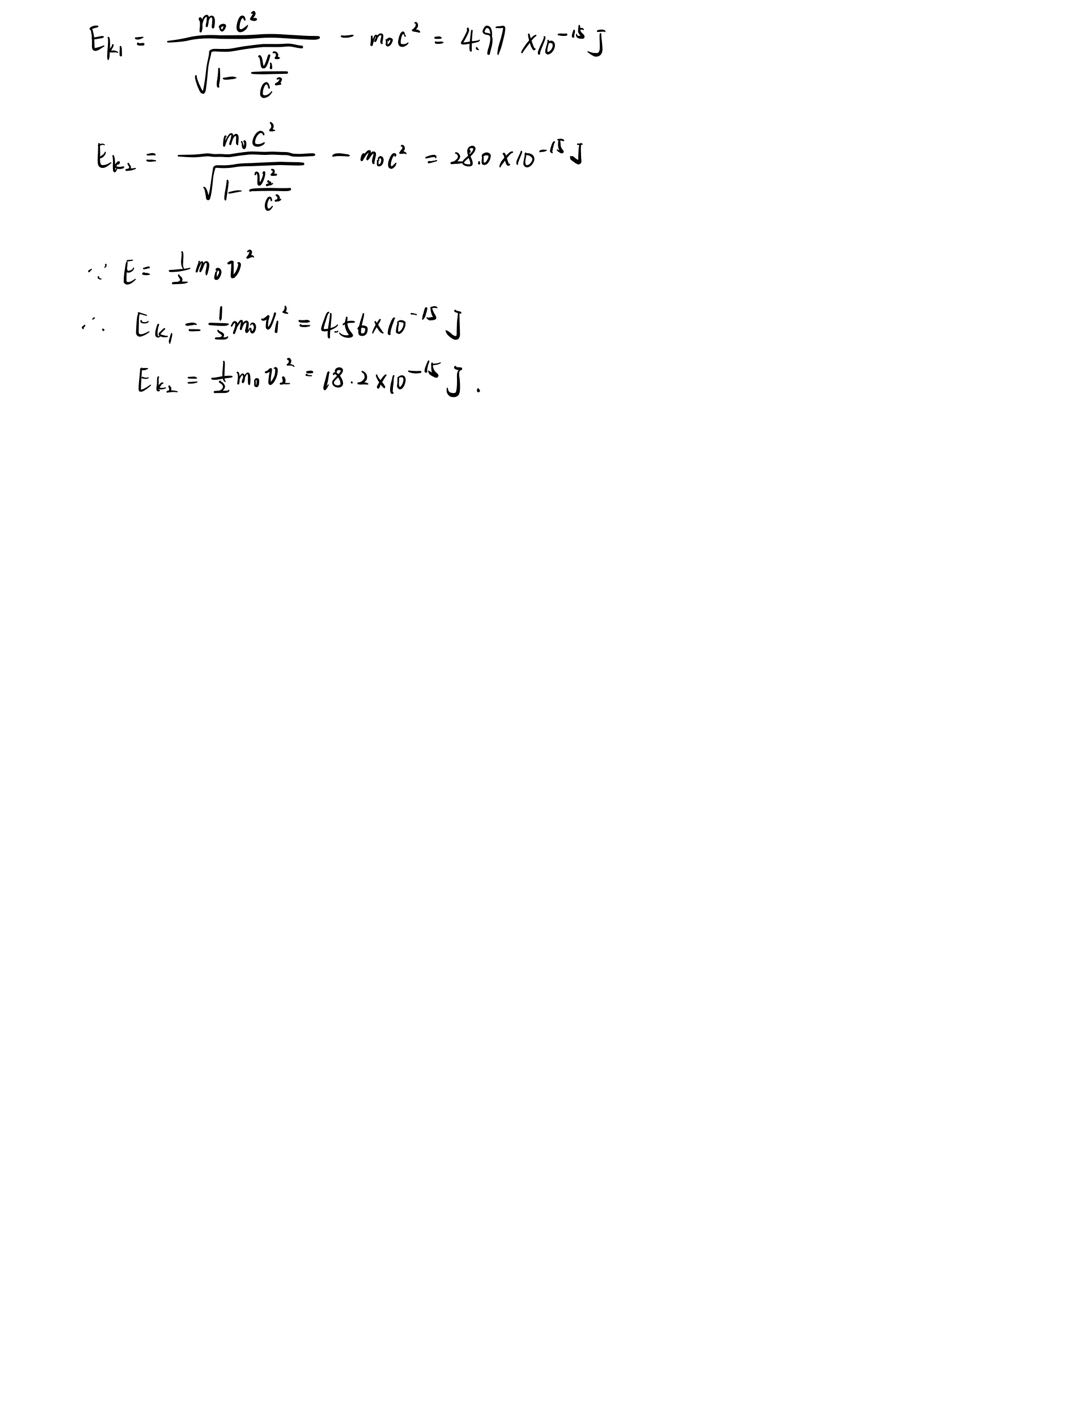 E_{k_1} = \frac{m_0 c^2}{\sqrt{1 - \frac{v_1^2}{c^2}}} - m_0 c^2 = 4.97 × 10^{-15} J
E_{k_2} = \frac{m_0 c^2}{\sqrt{1 - \frac{v_2^2}{c^2}}} - m_0 c^2 = 28.0 × 10^{-15} J
∵ E = \frac{1}{2} m_0 v^2
∴ E_{k_1} = \frac{1}{2} m_0 v_1^2 = 4.56 × 10^{-15} J
E_{k_2} = \frac{1}{2} m_0 v_2^2 = 18.2 × 10^{-15} J.